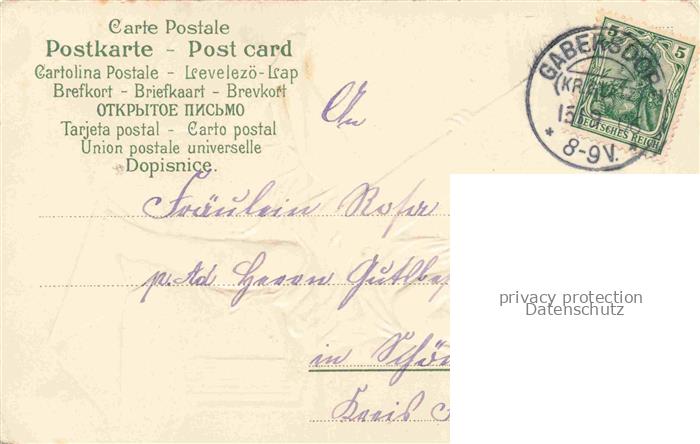 Carte Postale
Postkarte - Post card
Cartolina Postale - Levelezö-Lap
Brefkort - Briefkaart - Brevkort
ОТКРЫТОЕ ПИСЬМО
Tarjeta postal - Carto postal
Union postale universelle
Dopisnice.
5 5
DEUTSCHES REICH
GABERSDORF
8-9V.
An
Fräulein Rosa
p. Ad Herrn
in
Kreis
privacy protection
Datenschutz